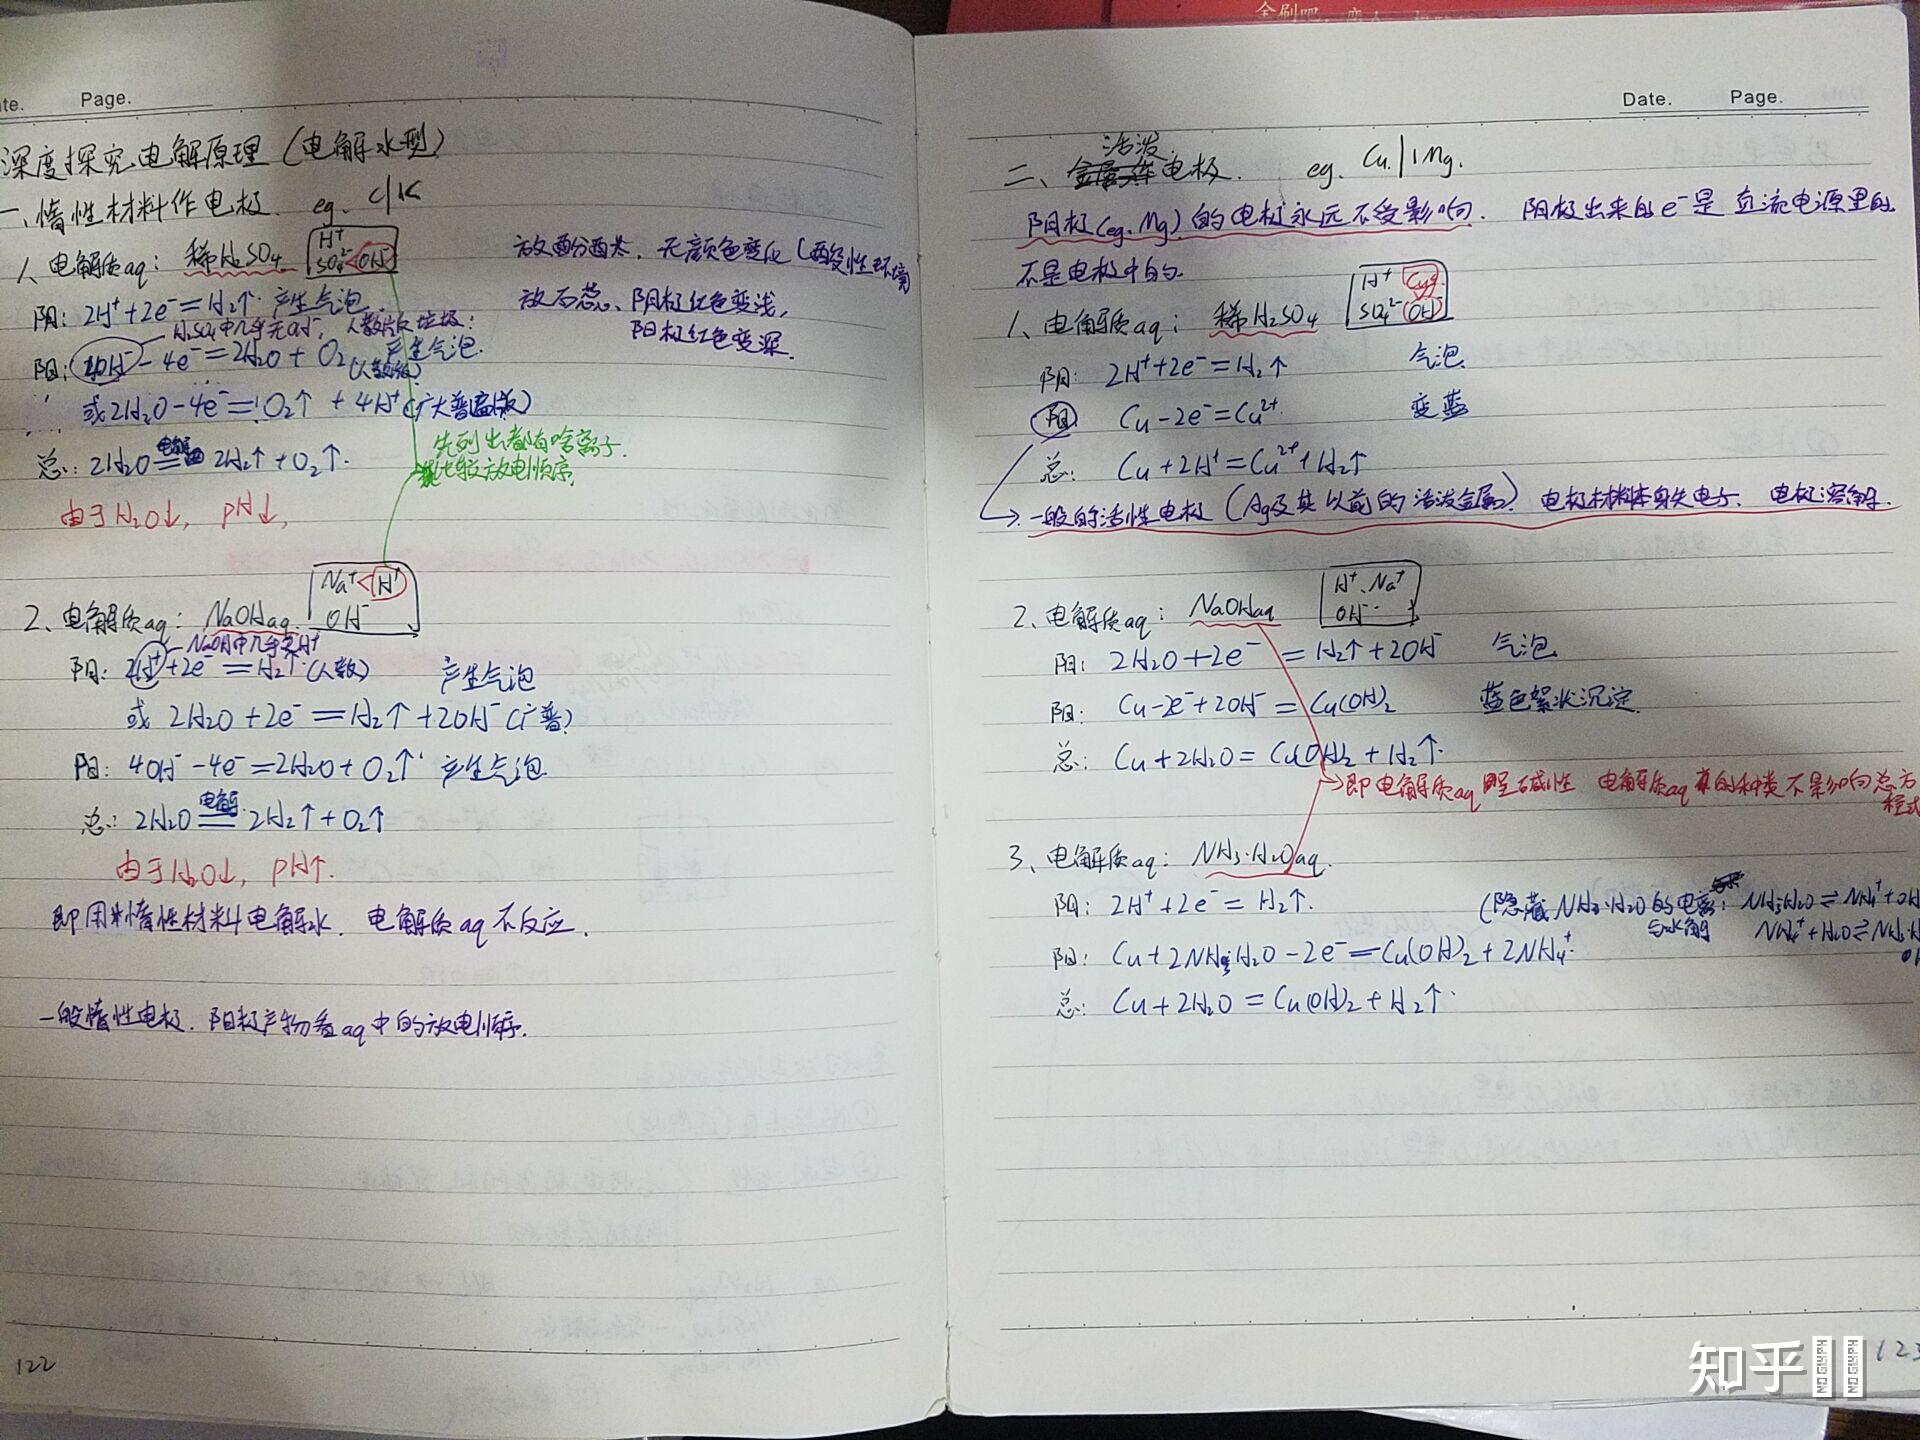 Date. Page.
深度探究电解原理(电解水型)
一、惰性材料作电极. eg. C/K
1、电解质aq: 稀H₂SO₄ H⁺
SO₄²⁻<OH⁻
放酚酞, 无颜色变化(酸性环境
放石蕊、阴极红色变浅,
阳极红色变深.
阴: 2H⁺+2e⁻=H₂↑. 产生气泡
H₂SO₄中几乎无OH⁻,
阳: 4OH⁻-4e⁻=2H₂O+O₂ 产生气泡.
或2H₂O-4e⁻=O₂↑+4H⁺(广大普遍版)
先列出都有啥离子.
比较放电顺序.
总: 2H₂O 电解 2H₂↑+O₂↑.
由于H₂O↓, pH↓,
2、电解质aq: NaOHaq. Na⁺<H⁺
OH⁻
NaOH中几乎无H⁺
阴: 2H⁺+2e⁻=H₂↑(人教) 产生气泡
或 2H₂O+2e⁻=H₂↑+2OH⁻(广普)
阳: 4OH⁻-4e⁻=2H₂O+O₂↑ 产生气泡
总: 2H₂O 电解 2H₂↑+O₂↑
由于H₂O↓, pH↑.
即用惰性材料电解水. 电解质aq不反应.
一般惰性电极. 阳极产物看aq中的放电顺序.
122
Date. Page.
活泼
二、电极. eg. Cu/Mg.
阴极(eg. Mg)的电极永远不受影响. 阴极出来的e⁻是直流电源里的
不是电极中的.
1、电解质aq: 稀H₂SO₄ H⁺
SO₄²⁻ OH⁻
阴: 2H⁺+2e⁻=H₂↑ 气泡
阳: Cu-2e⁻=Cu²⁺ 变蓝
总: Cu+2H⁺=Cu²⁺+H₂↑
→一般的活性电极(Ag及其以前的活泼金属) 电极材料本身失电子. 电极溶解.
2、电解质aq: NaOHaq H⁺、Na⁺
OH⁻
阴: 2H₂O+2e⁻=H₂↑+2OH⁻ 气泡
阳: Cu-2e⁻+2OH⁻=Cu(OH)₂ 蓝色絮状沉淀.
总: Cu+2H₂O=Cu(OH)₂+H₂↑.
→即电解质aq呈碱性 电解质aq的种类不影响总方
程式
3、电解质aq: NH₃·H₂Oaq.
阴: 2H⁺+2e⁻=H₂↑. (隐藏NH₃·H₂O的电离: NH₃·H₂O⇌NH₄⁺+OH
与水解 NH₄⁺+H₂O⇌NH₃·H
阳: Cu+2NH₃·H₂O-2e⁻=Cu(OH)₂+2NH₄⁺
总: Cu+2H₂O=Cu(OH)₂+H₂↑.
123
知乎